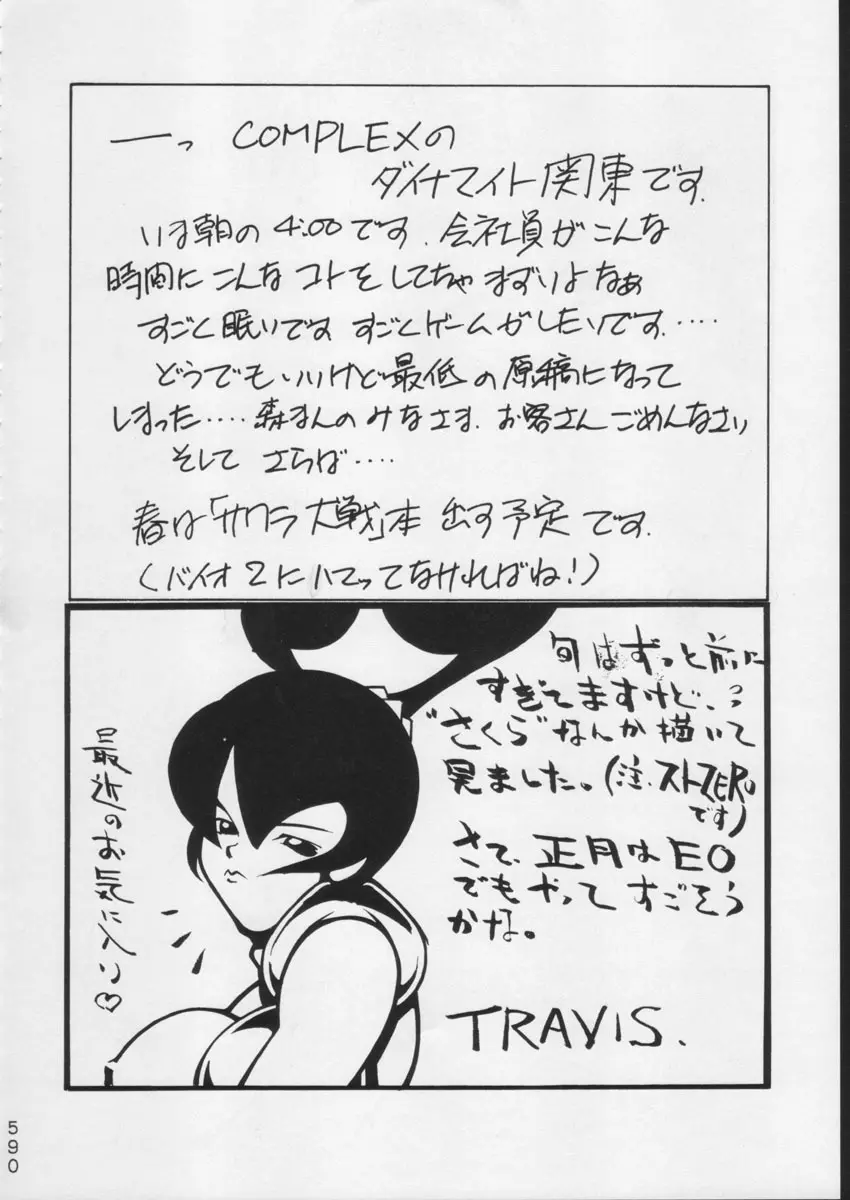 COMPLEXの
ダイナマイト関東です.
いま朝の4:00です.会社員がこんな
時間にこんなコトをしてちゃまずいよなぁ
すごく眠いです すごくゲームがしたいです‥‥
どうでもいいけど最低の原稿になって
しまった‥‥森まんのみなさま.お客さんごめんなさい
そして さらば‥‥
春は「サクラ大戦」本 出す予定です.
(バイオ2にハマってなければね!)
旬はずっと前に
すぎてますけど、
"さくら"なんか描いて
見ました。(注.ストZERO
です)
さて、正月はEO
でもやってすごそう
かな。
TRAVIS.
最近のお気に入り♡
590